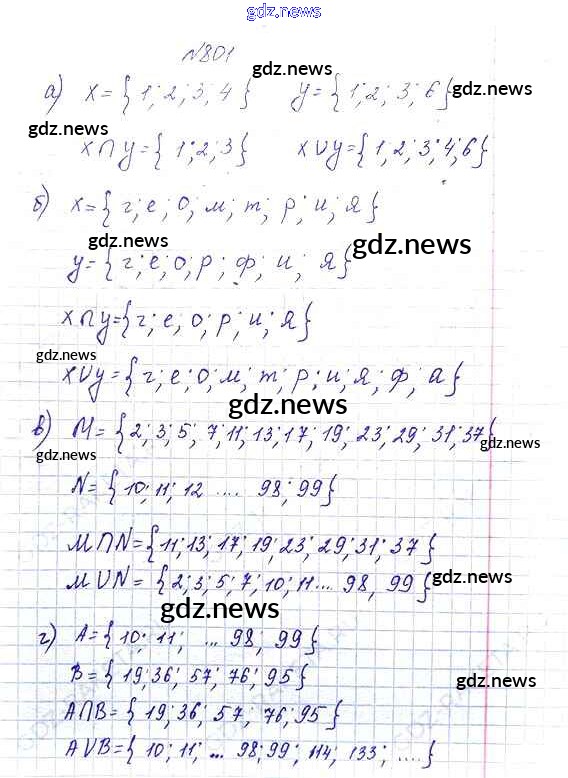 gdz.news
№801
gdz.news
а) X={1;2;3;4} y={1;2;3;6} gdz.news
gdz.news
X∩y={1;2;3} X∪y={1;2;3;4;6}
б) X={г;е;о;м;т;р;и;я}
gdz.news gdz.news
y={г;е;о;р;ф;и;я}
X∩y={г;е;о;р;и;я}
gdz.news
X∪y={г;е;о;м;т;р;и;я;ф;а}
gdz.news
в) M={2;3;5;7;11;13;17;19;23;29;31;37}
gdz.news gdz.news
N={10;11;12 .... 98;99}
M∩N={11;13;17;19;23;29;31;37}
M∪N={2;3;5;7;10;11... 98, 99} gdz.news
gdz.news
г) A={10;11; ... 98; 99}
B={19;36; 57; 76; 95}
gdz.news
A∩B={19;36, 57, 76; 95}
A∪B={10; 11; ... 98;99; 114, 133; ....}